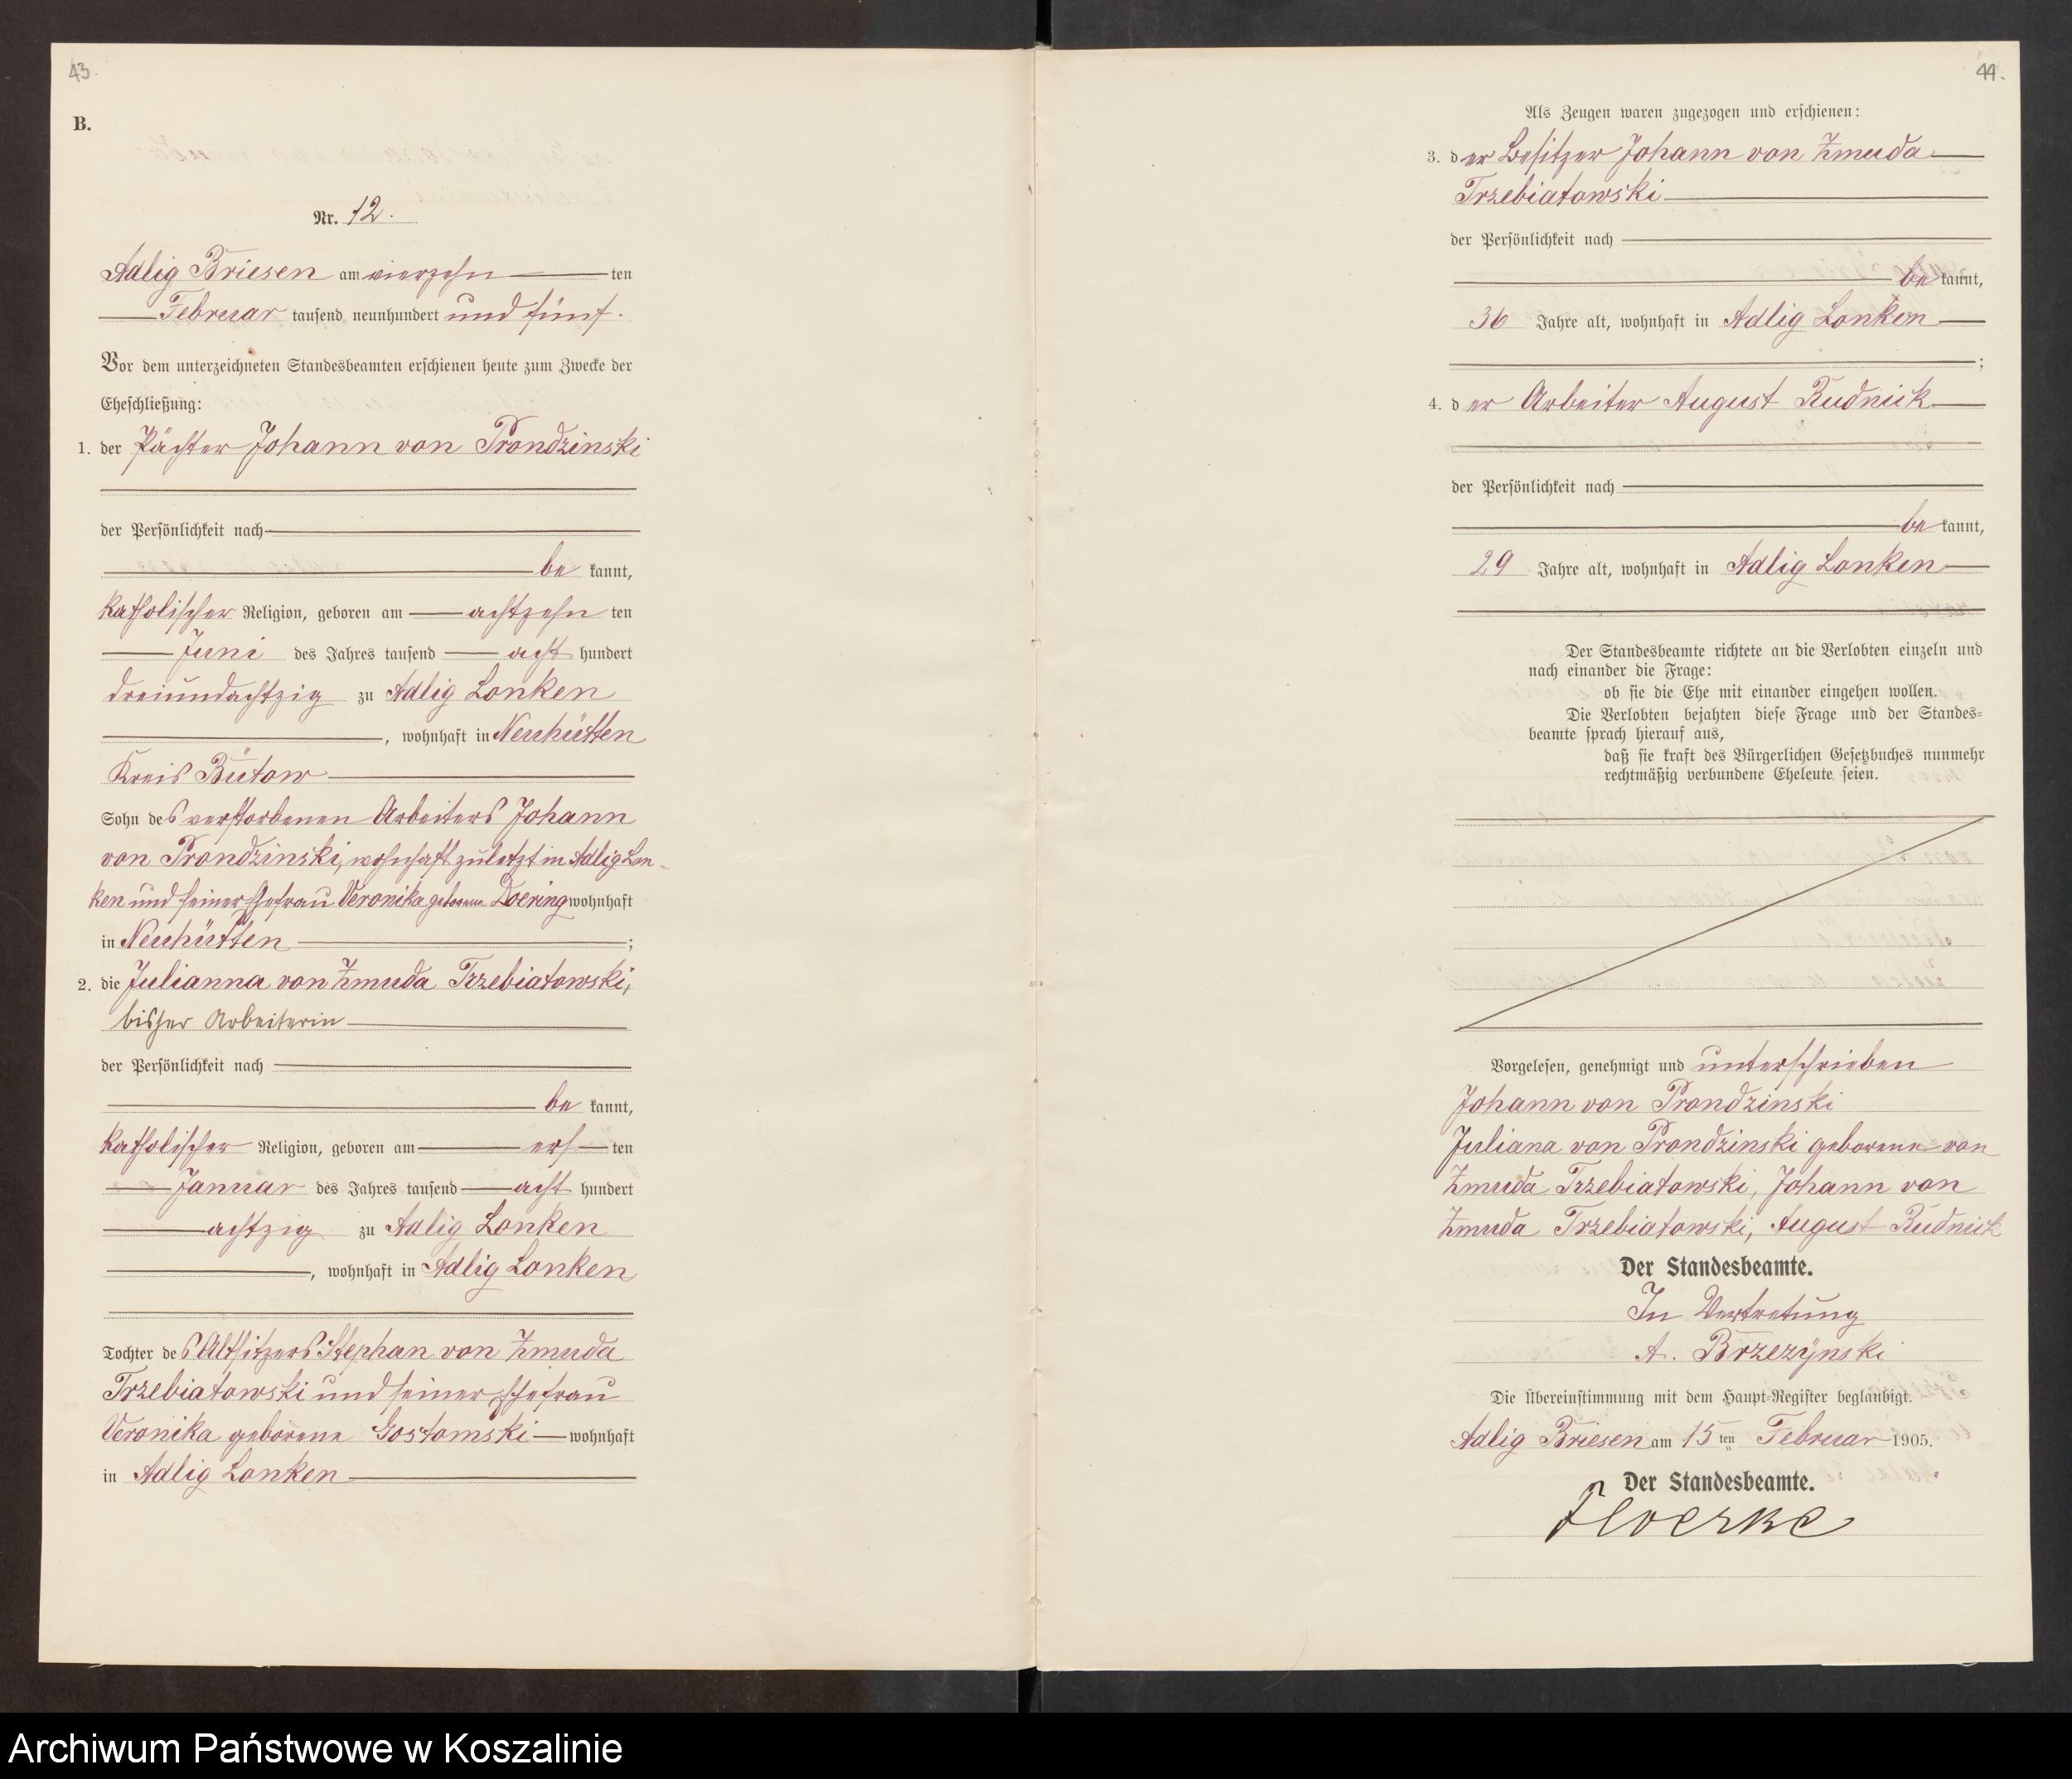 43.
B.
Nr. 12.
Adlig Briesen am vierzehn ten
Februar tausend neunhundert und fünf.
Vor dem unterzeichneten Standesbeamten erschienen heute zum Zwecke der
Eheschließung:
1. der Pächter Johann von Prondzinski
der Persönlichkeit nach
be kannt,
katholischer Religion, geboren am achtzehn ten
Juni des Jahres tausend acht hundert
dreiundachtzig zu Adlig Lonken
, wohnhaft in Neuhütten
Kreis Bütow
Sohn des verstorbenen Arbeiters Johann
von Prondzinski, wohnhaft zuletzt in Adlig Lon-
ken und seiner Ehefrau Veronika geborene Doering wohnhaft
in Neuhütten ;
2. die Julianna von Zmuda Trzebiatowski,
bisher Arbeiterin
der Persönlichkeit nach
be kannt,
katholischer Religion, geboren am ers ten
Januar des Jahres tausend acht hundert
achtzig zu Adlig Lonken
, wohnhaft in Adlig Lonken
Tochter des Altsitzers Stephan von Zmuda
Trzebiatowski und seiner Ehefrau
Veronika geborene Gostomski wohnhaft
in Adlig Lonken
44.
Als Zeugen waren zugezogen und erschienen:
3. der Besitzer Johann von Zmuda
Trzebiatowski
der Persönlichkeit nach
be kannt,
36 Jahre alt, wohnhaft in Adlig Lonken
;
4. der Arbeiter August Rudnick
der Persönlichkeit nach
be kannt,
29 Jahre alt, wohnhaft in Adlig Lonken
Der Standesbeamte richtete an die Verlobten einzeln und
nach einander die Frage:
ob sie die Ehe mit einander eingehen wollen.
Die Verlobten bejahten diese Frage und der Standes-
beamte sprach hierauf aus,
daß sie kraft des Bürgerlichen Gesetzbuches nunmehr
rechtmäßig verbundene Eheleute seien.
Vorgelesen, genehmigt und unterschrieben
Johann von Prondzinski
Juliana von Prondzinski geborene von
Zmuda Trzebiatowski, Johann von
Zmuda Trzebiatowski, August Rudnick
Der Standesbeamte.
In Vertretung
A. Brzezÿnski
Die Übereinstimmung mit dem Haupt-Register beglaubigt.
Adlig Briesen am 15ten Februar 1905.
Der Standesbeamte.
Archiwum Państwowe w Koszalinie